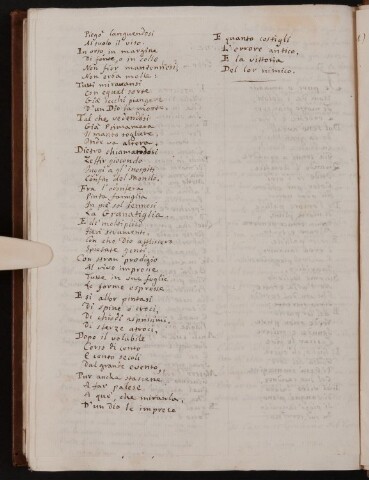 Piegò languendosi
Al suolo il viso.
In orto, in margine
Di fonte, o in colle
Non fior mantennesi,
Non erba molle:
Tutti mirovansi
Con equal sorte
Già secchi piangere
D'un Dio la morte.
Tal che vedendosi
Già Primavera
Il manto togliere,
Onde va altera;
Dietro chiamandosi
Zeffir giocondo
Fuggì agl'inospiti
Confin del Mondo.
Fra l'
Pinta famiglia
In piè sol tennesi
La Granatiglia.
E di moltiplici
Fieri strumenti,
Con che Dio afflissero
Spietate genti
Con stran prodigio
Al vivo impresse
Tutte in sue foglie
Le forme espresse
E si allor pintasi
Di spine e croci,
Di chiodi asprissimi
Di sferze atroci,
Dopo il volubile
Corso di cento
E cento secoli
Dal grande evento,
Pur anche stassene
A far palese
A que', che miranla,
D'un Dio le imprese
E quanto costigli
L'errore antico,
E la vittoria
Del lor nemico.